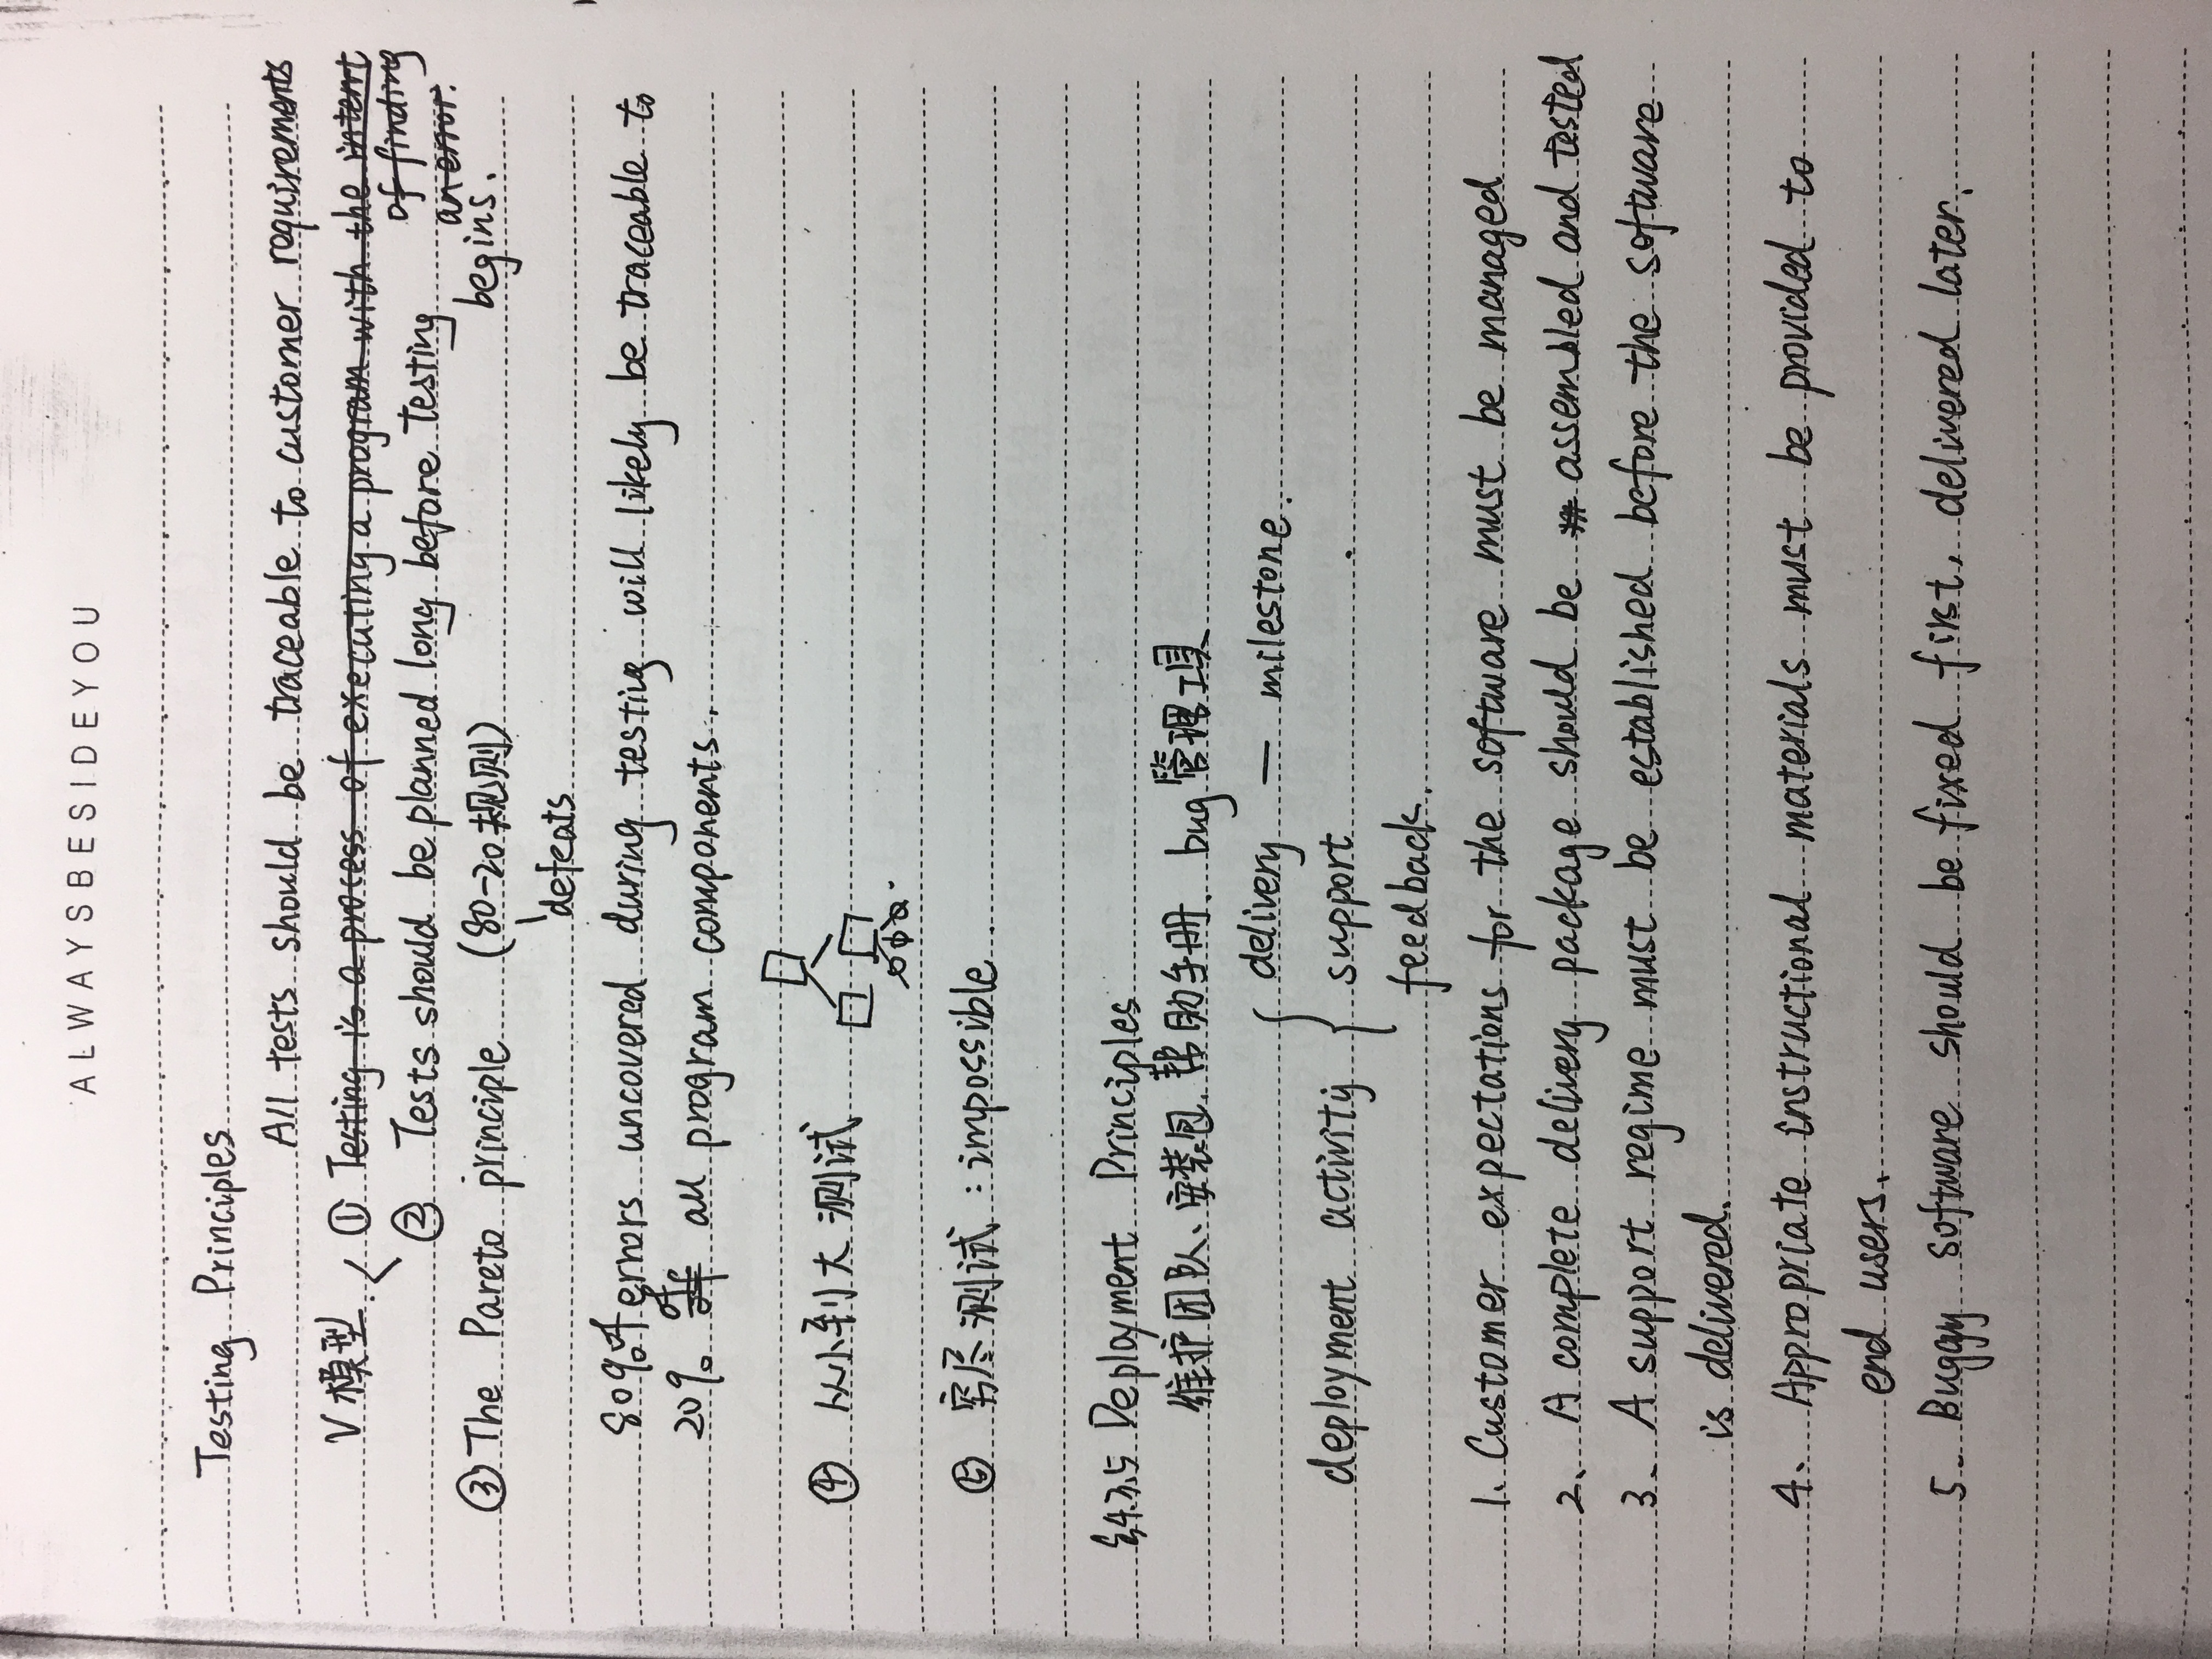 ALWAYSBESIDEYOU
Testing Principles
All tests should be traceable to customer requirements
V模型 ① Testing is a process of executing a program with the intent
of finding
an error.
② Tests should be planned long before testing
begins.
③ The Pareto principle (80-20规则)
defeats
80% of errors uncovered during testing will likely be traceable to
20% of all program components.
④ 从小到大测试
⑤ 穷尽测试：impossible.
§4.3.5 Deployment Principles
维护团队、安装包、帮助手册、bug管理工具
delivery — milestone.
deployment activity support
feedback.
1. Customer expectations for the software must be managed
2. A complete delivery package should be assembled and tested
3. A support regime must be established before the software
is delivered.
4. Appropriate instructional materials must be provided to
end users.
5. Buggy software should be fixed first, delivered later.